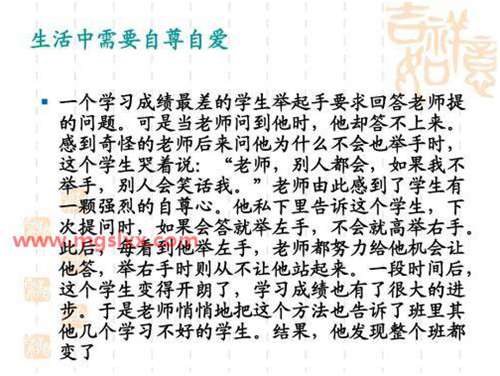 生活中需要自尊自爱
吉祥
如意
一个学习成绩最差的学生举起手要求回答老师提
的问题。可是当老师问到他时，他却答不上来。
感到奇怪的老师后来问他为什么不会也举手时，
这个学生哭着说：“老师，别人都会，如果我不
举手，别人会笑话我。”老师由此感到了学生有
一颗强烈的自尊心。他私下里告诉这个学生，下
次提问时，如果会答就举左手，不会就高举右手。
此后，每看到他举左手，老师都努力给他机会让
他答，举右手时则从不让他站起来。一段时间后，
这个学生变得开朗了，学习成绩也有了很大的进
步。于是老师悄悄地把这个方法也告诉了班里其
他几个学习不好的学生。结果，他发现整个班都
变了
www.mgslxx.com